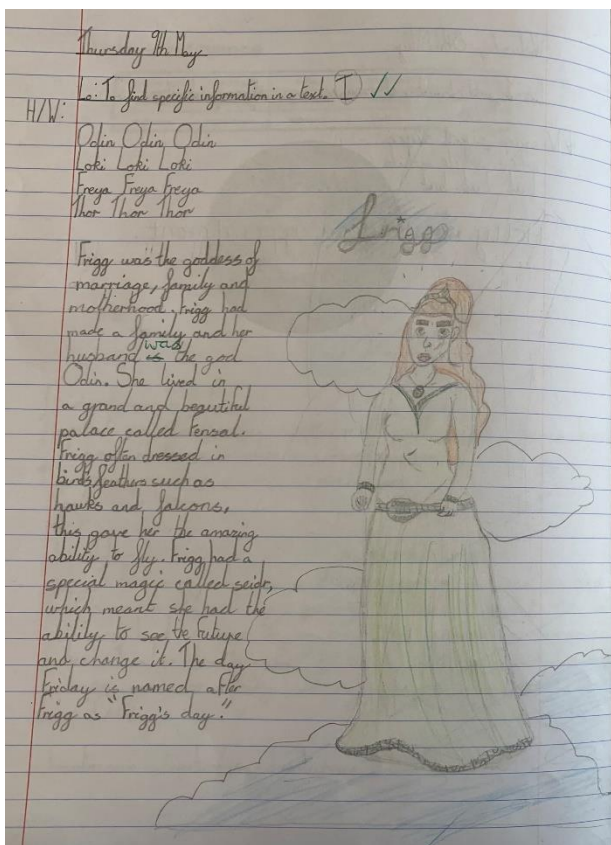 Thursday 9th May
Lo: To find specific information in a text. I
H/W:
Odin Odin Odin
Loki Loki Loki
Freya Freya Freya
Thor Thor Thor
Frigg
Frigg was the goddess of
marriage, family and
motherhood. Frigg had
made a family and her
husband is was the god
Odin. She lived in
a grand and beautiful
palace called Fensal.
Frigg often dressed in
birds feathers such as
hawks and falcons,
this gave her the amazing
ability to fly. Frigg had a
special magic called seidr,
which meant she had the
ability to see the future
and change it. The day
Friday is named after
Frigg as "Frigg's day."